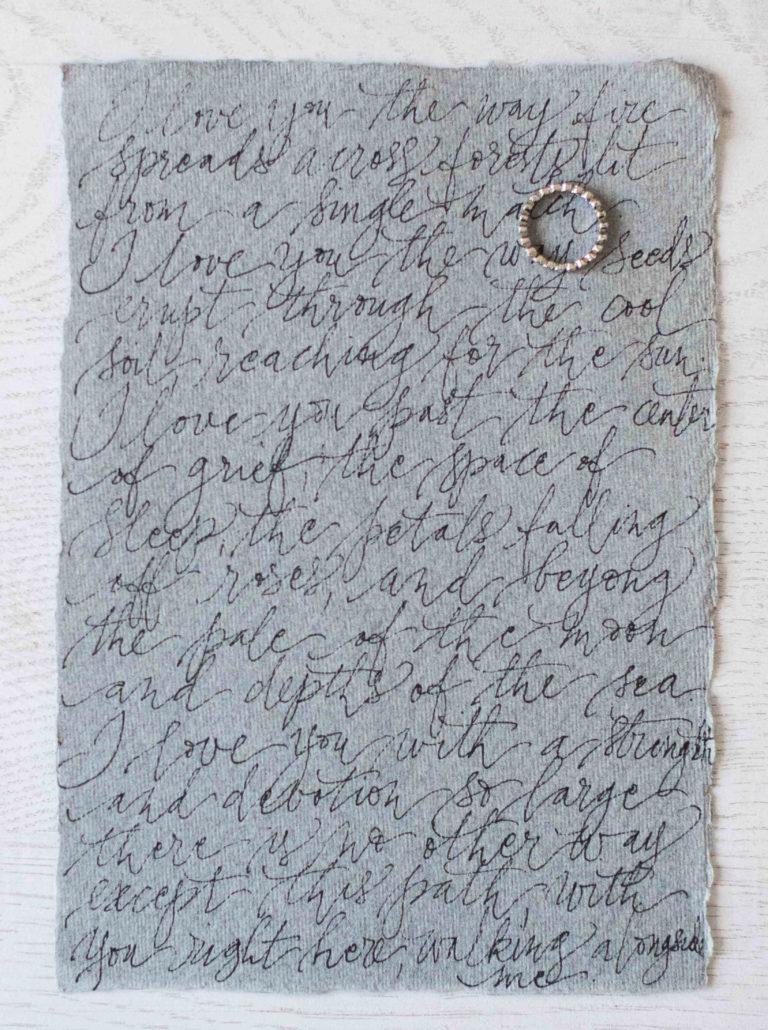 I love you the way fire
spreads across forests, lit
from a single match.
I love you the way seeds
erupt through the cool
soil reaching for the sun.
I love you past the center
of grief, the space of
sleep, the petals falling
off roses, and beyong
the pale of the moon
and depths of the sea.
I love you with a strength
and devotion so large
there is no other way
except this path, with
you right here, walking alongside
me.